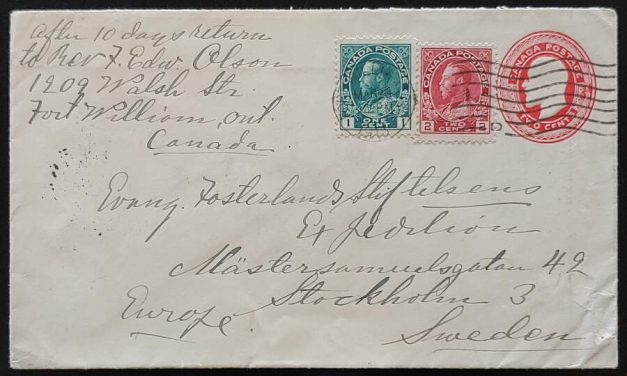 after 10 days return
to Rev F. Edw. Olson
1209 Walsh Str.
Fort William, Ont.
Canada
CANADA POSTAGE
1 ONE CENT 1
CANADA POSTAGE
2 TWO CENTS 2
CANADA POSTAGE
TWO CENTS
Evang. Fosterlands Stiftelsens
Expedition
Mästersamuelsgatan 42
Stockholm 3
Europe.
Sweden